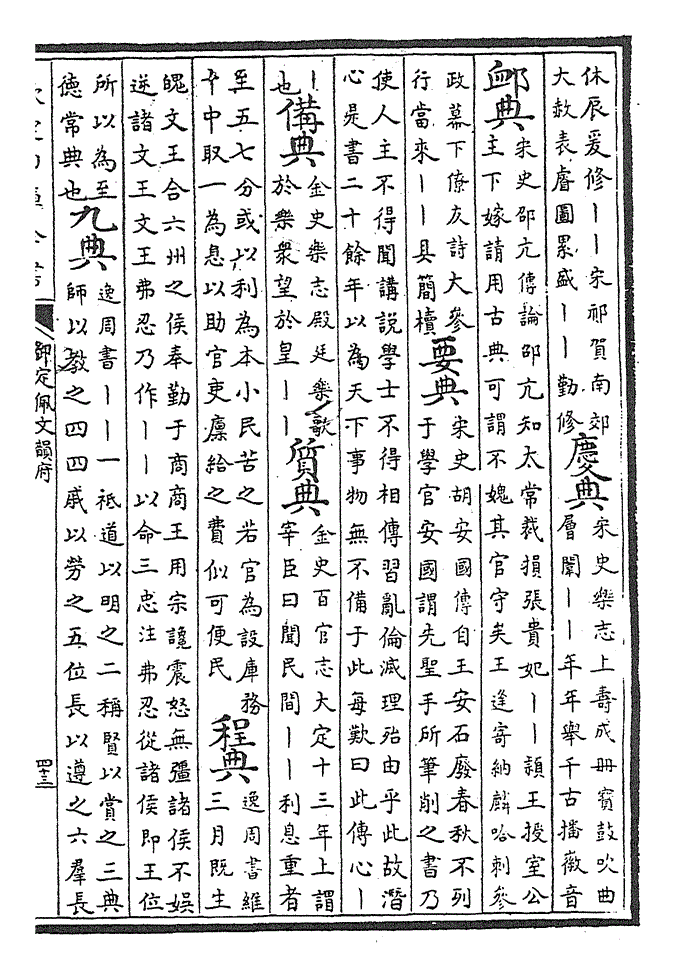 休辰爰修｜｜宋祁賀南郊
大赦表膺圖累盛｜｜勤修
慶典
宋史樂志上壽成冊寶鼓吹曲
層闈｜｜年年舉千古播徽音
䘏典
宋史邵亢傳論邵亢知太常裁損張貴妃｜｜潁王授室公
主下嫁請用古典可謂不媿其官守矣王逢寄納麟哈剌參
政幕下僚友詩大參
行當來｜｜具簡櫝
要典
宋史胡安國傳自王安石廢春秋不列
于學官安國謂先聖手所筆削之書乃
使人主不得聞講說學士不得相傳習亂倫滅理殆由乎此故潛
心是書二十餘年以為天下事物無不備于此每歎曰此傳心｜
｜
也
備典
金史樂志殿廷樂歌
於樂衆望於皇｜｜
質典
金史百官志大定十三年上謂
宰臣曰聞民間｜｜利息重者
至五七分或以利為本小民苦之若官為設庫務
十中取一為息以助官吏廩給之費似可便民
程典
逸周書維
三月既生
魄文王合六州之侯奉勤于商商王用宗讒震怒無疆諸侯不娛
逆諸文王文王弗忍乃作｜｜以命三忠注弗忍從諸侯即王位
所以為至
德常典也
九典
逸周書｜｜一祗道以明之二稱賢以賞之三典
師以教之四四戚以勞之五位長以遵之六羣長
御定佩文韻府
四十三